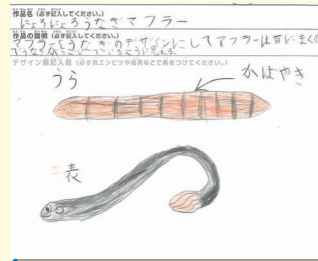 作品名(必ず記入してください。)
にょろにょろうなぎマフラー
作品の説明(必ず記入してください。)
マフラーをうなぎのデザインにしてマフラーは首にまくの
デザイン画記入欄(必ず色エンピツや絵具などで色をつけてください。)
うら
かばやき
表